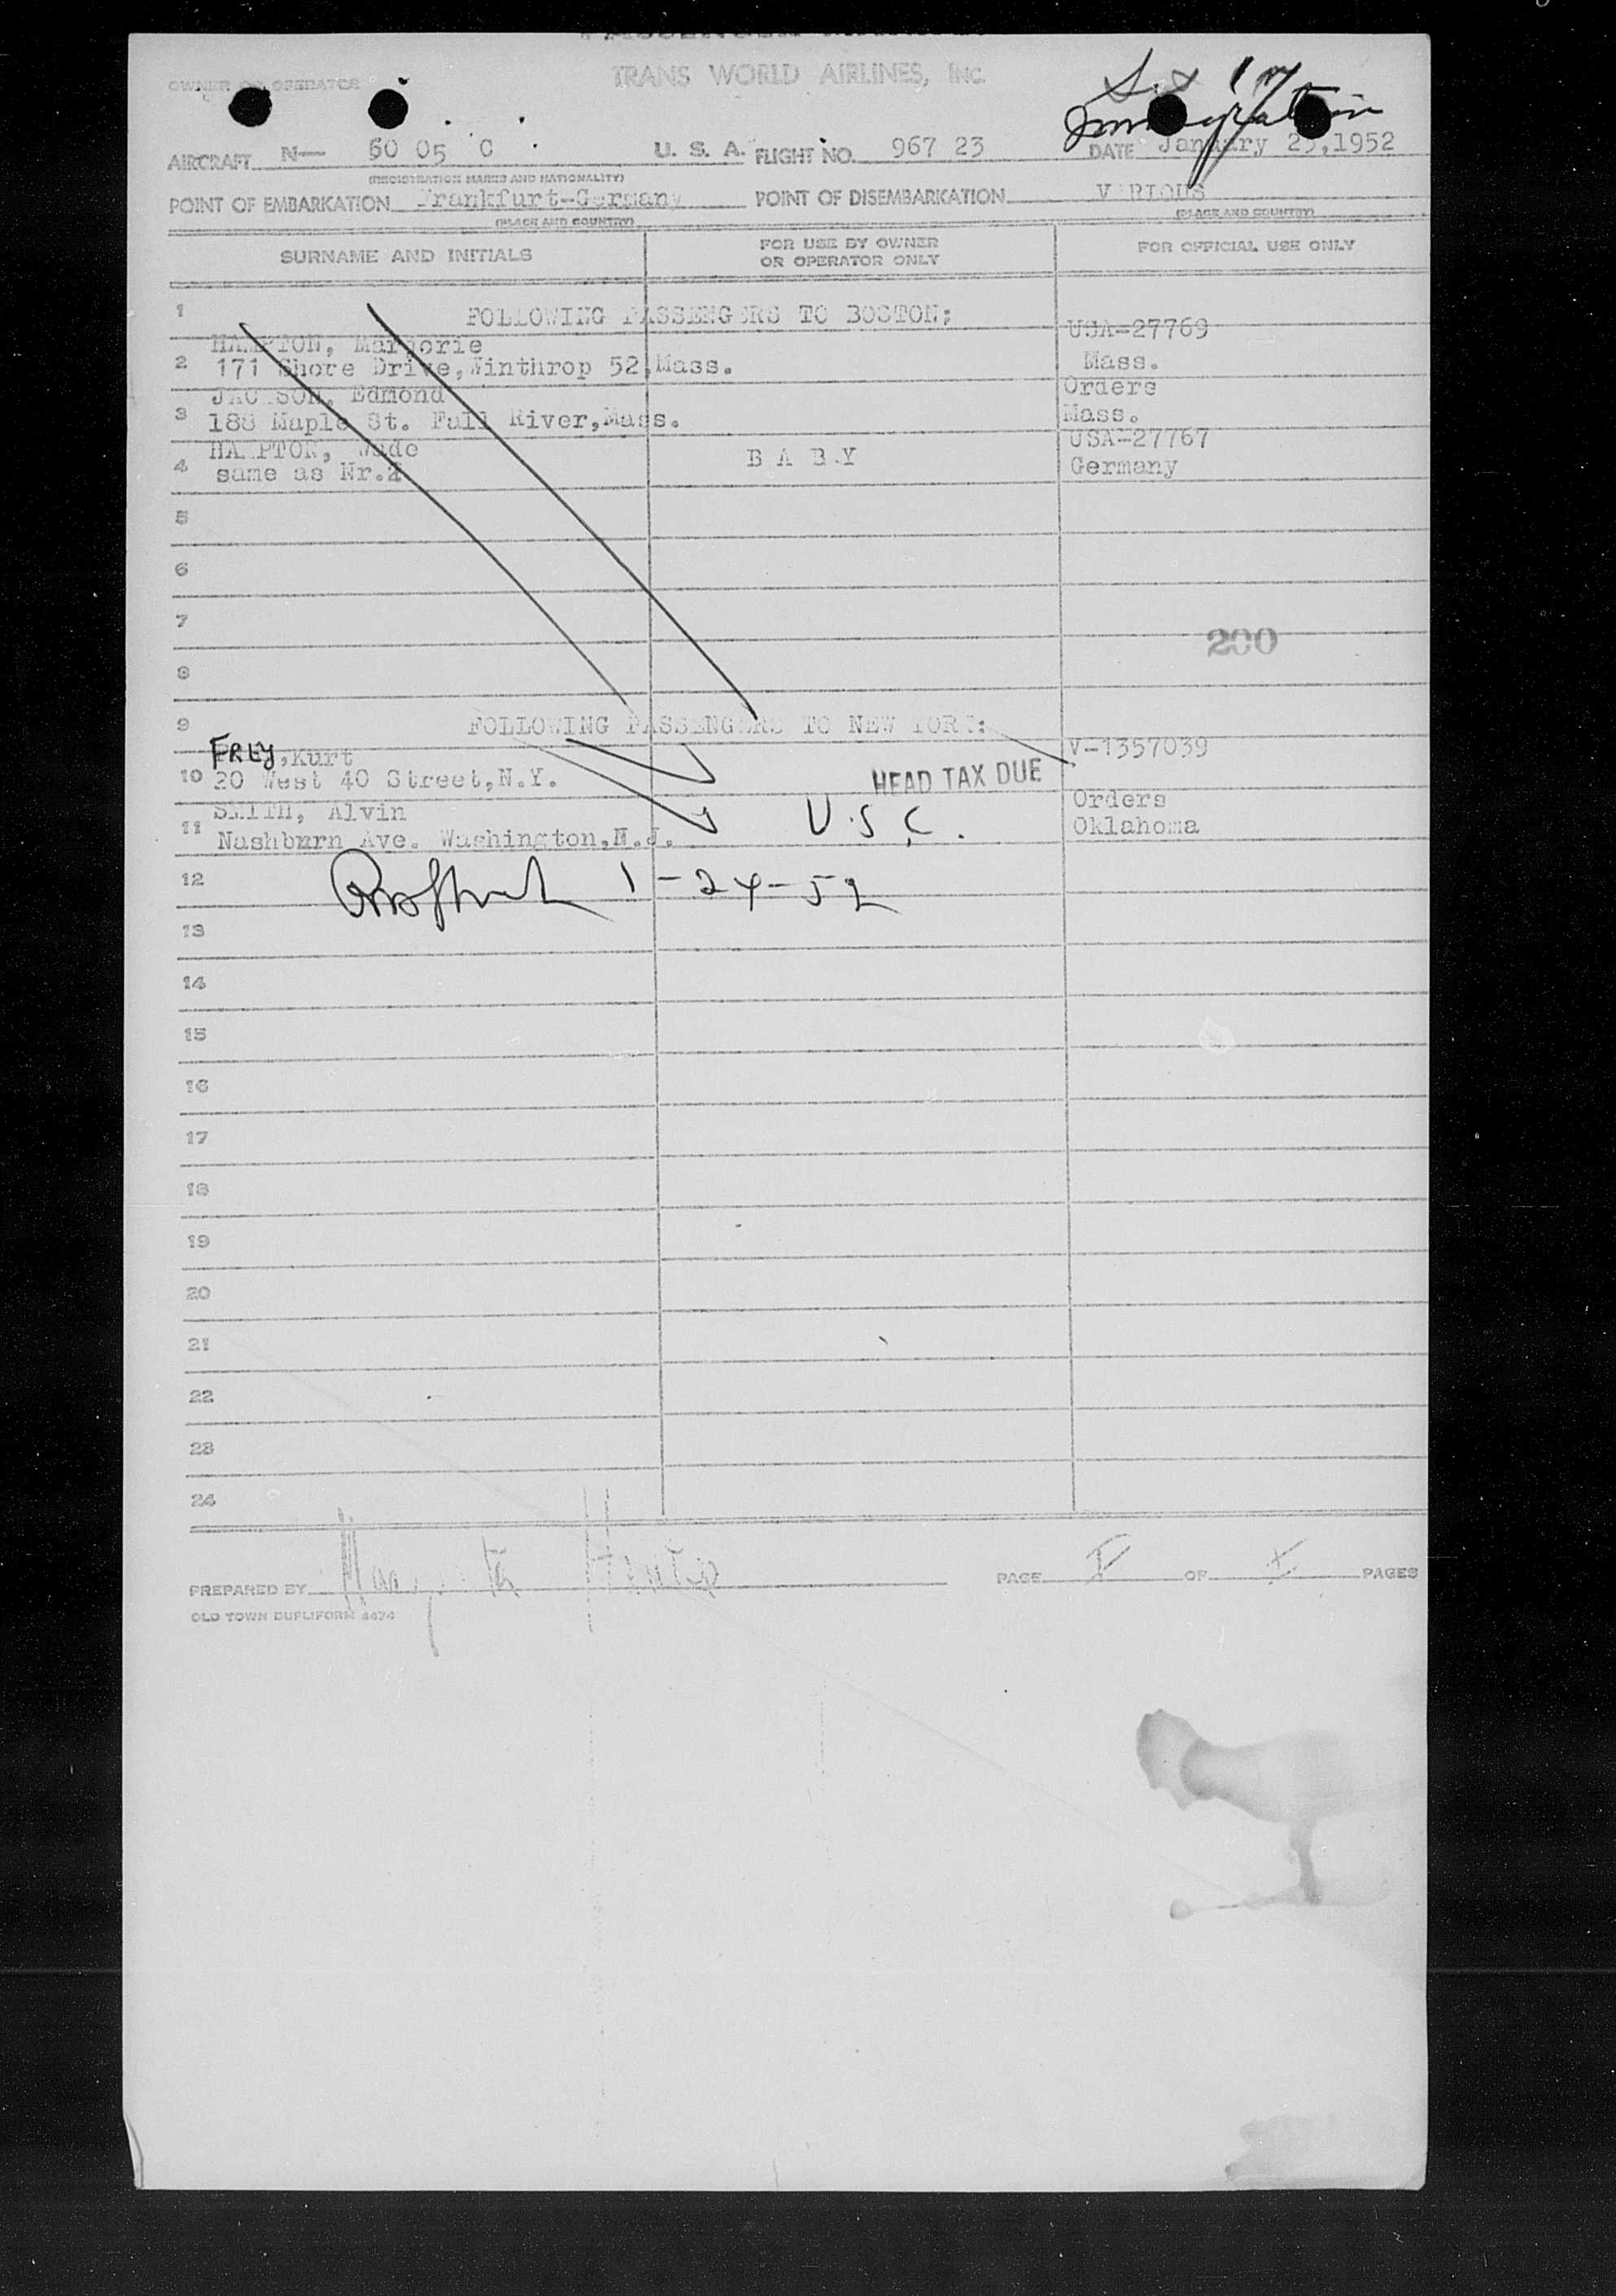 OWNER OR OPERATOR TRANS WORLD AIRLINES, INC.
Immigration
AIRCRAFT N— 60 05 C U. S. A. FLIGHT NO. 967 23 DATE January 23, 1952
(REGISTRATION MARKS AND NATIONALITY)
POINT OF EMBARKATION Frankfurt-Germany POINT OF DISEMBARKATION VARIOUS
(PLACE AND COUNTRY) (PLACE AND COUNTRY)
SURNAME AND INITIALS FOR USE BY OWNER OR OPERATOR ONLY FOR OFFICIAL USE ONLY
1 FOLLOWING PASSENGERS TO BOSTON;
HAMPTON, Marjorie USA-27769
2 171 Shore Drive, Winthrop 52, Mass. Mass.
JACKSON, Edmond Orders
3 188 Maple St. Fall River, Mass. Mass.
HAMPTON, Wade USA-27767
4 same as Nr.2 B A B Y Germany
5
6
7
200
8
9 FOLLOWING PASSENGERS TO NEW YORK:
FREY, Kurt V-1357039
10 20 West 40 Street, N.Y. HEAD TAX DUE
SMITH, Alvin Orders
11 Nashburn Ave. Washington, N.J. U.S.C. Oklahoma
12 1-24-52
13
14
15
16
17
18
19
20
21
22
23
24
PREPARED BY PAGE OF PAGES
OLD TOWN DUPLIFORM 4474